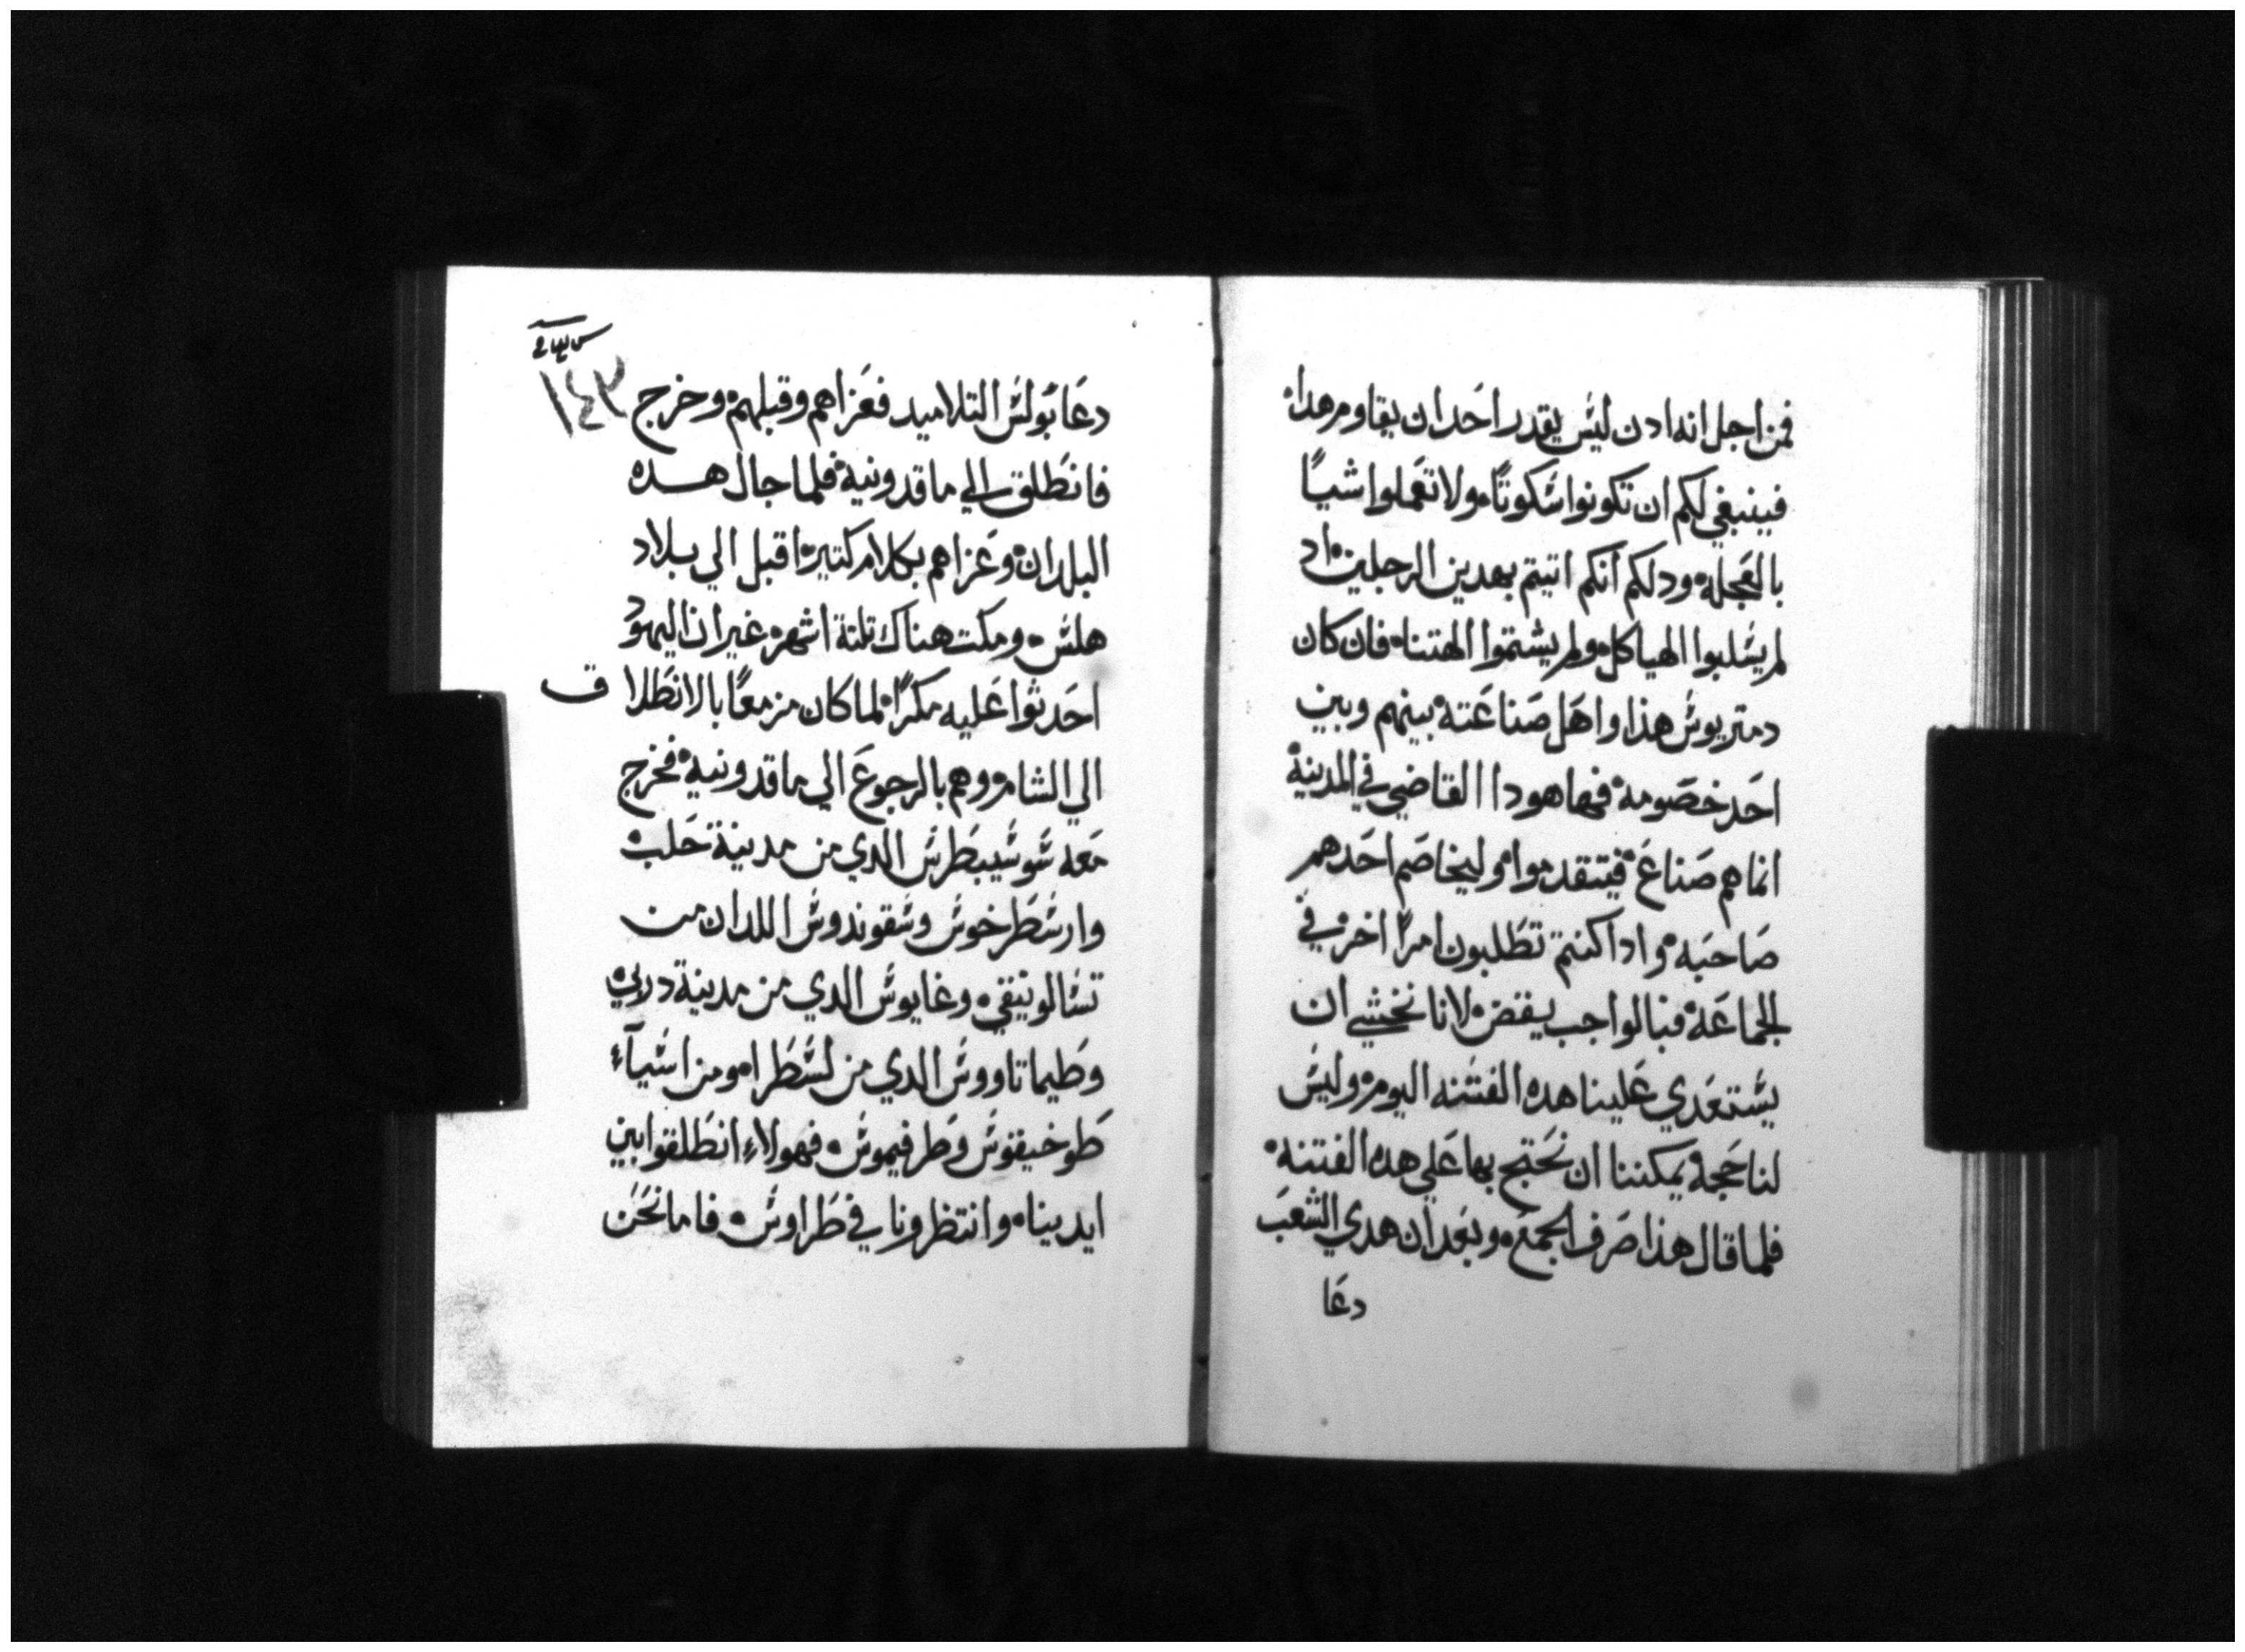 فمن اجل انه ادن ليس يقدر احدان يقاوم هداه
فينبغي لكم ان تكونوا سكوتاً ولا تعملوا شياً
بالعجله ودلكم انكم اتيتم بهدين الرجلين اد
لم يسلبوا الهياكل ولم يشتموا الهتنا فان كان
دمتريوس هذا واهل صناعته بينهم وبين
احد خصومة فها هودا القاضي في المدينة
انما هم صناع فيتقدموا وليخاصم احدهم
صاحبه وادا كنتم تطلبون امراً اخر في
الجماعة فبالواجب يقض لانا نخشي ان
يستعدي علينا هده الفتنه اليوم وليس
لنا حجة يمكننا ان نحتج بها علي هده الفتنة
فلما قال هذا صرف الجمع وبعد ان هدي الشعب
دعا
١٤٣
دعا بولس التلاميد فعزاهم وقبلهم وخرج
فانطلق الي ماقدونية فلما جال هده
البلدان وعزاهم بكلام كتير اقبل الي بلاد
هلس ومكت هناك تلتة اشهر غير ان اليهود
احدثوا عليه مكراً لما كان مزمعاً بالانطلاق
الي الشام وهم بالرجوع الي ماقدونية فخرج
معه سوسيبطرس الدي من مدينة حلب
وارسطرخوس وسقوندوس اللدان من
تسالونيقي وغايوس الدي من مدينة دربي
وطيماتاووس الدي من لسطرا ومن اسيآء
طوخيقوس وطرفيموس فهولاء انطلقوا بين
ايدينا وانتظرونا في طراوس فاما نحن